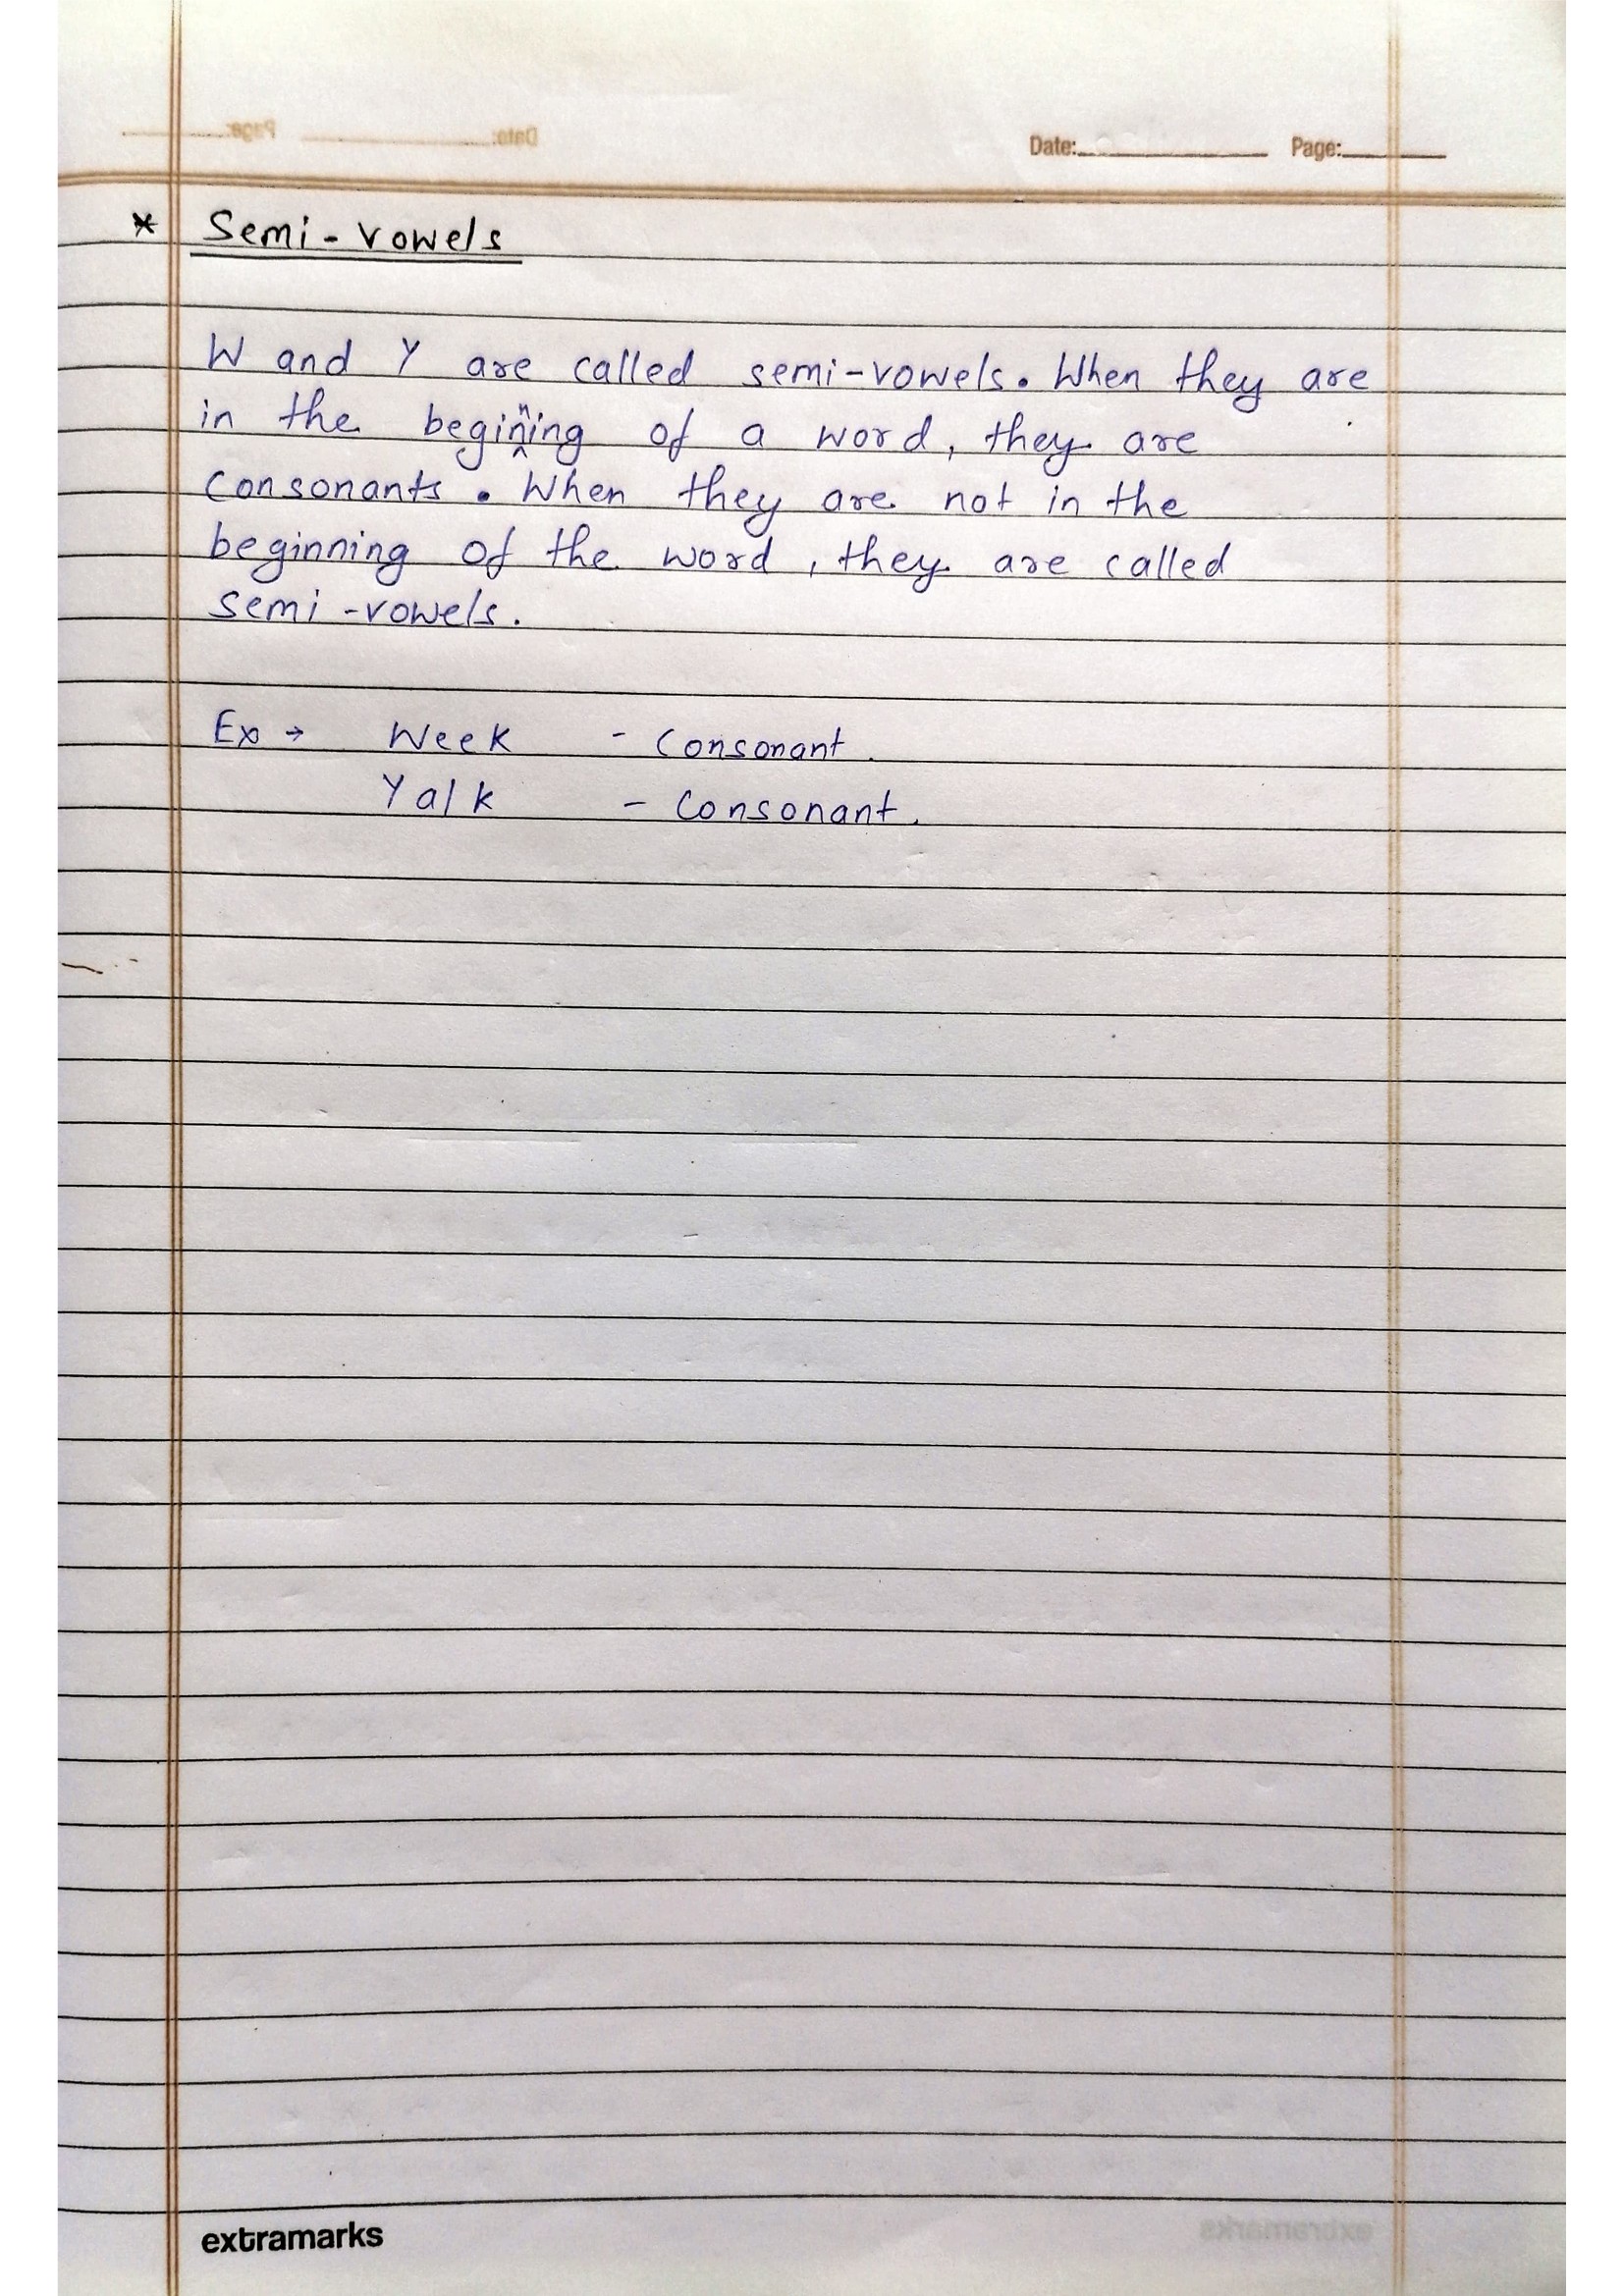 Date: Page:
* Semi-vowels
W and Y are called semi-vowels. When they are
in the beginning of a word, they are
consonants. When they are not in the
beginning of the word, they are called
semi-vowels.
Ex → Week - Consonant.
Yalk - Consonant.
extramarks